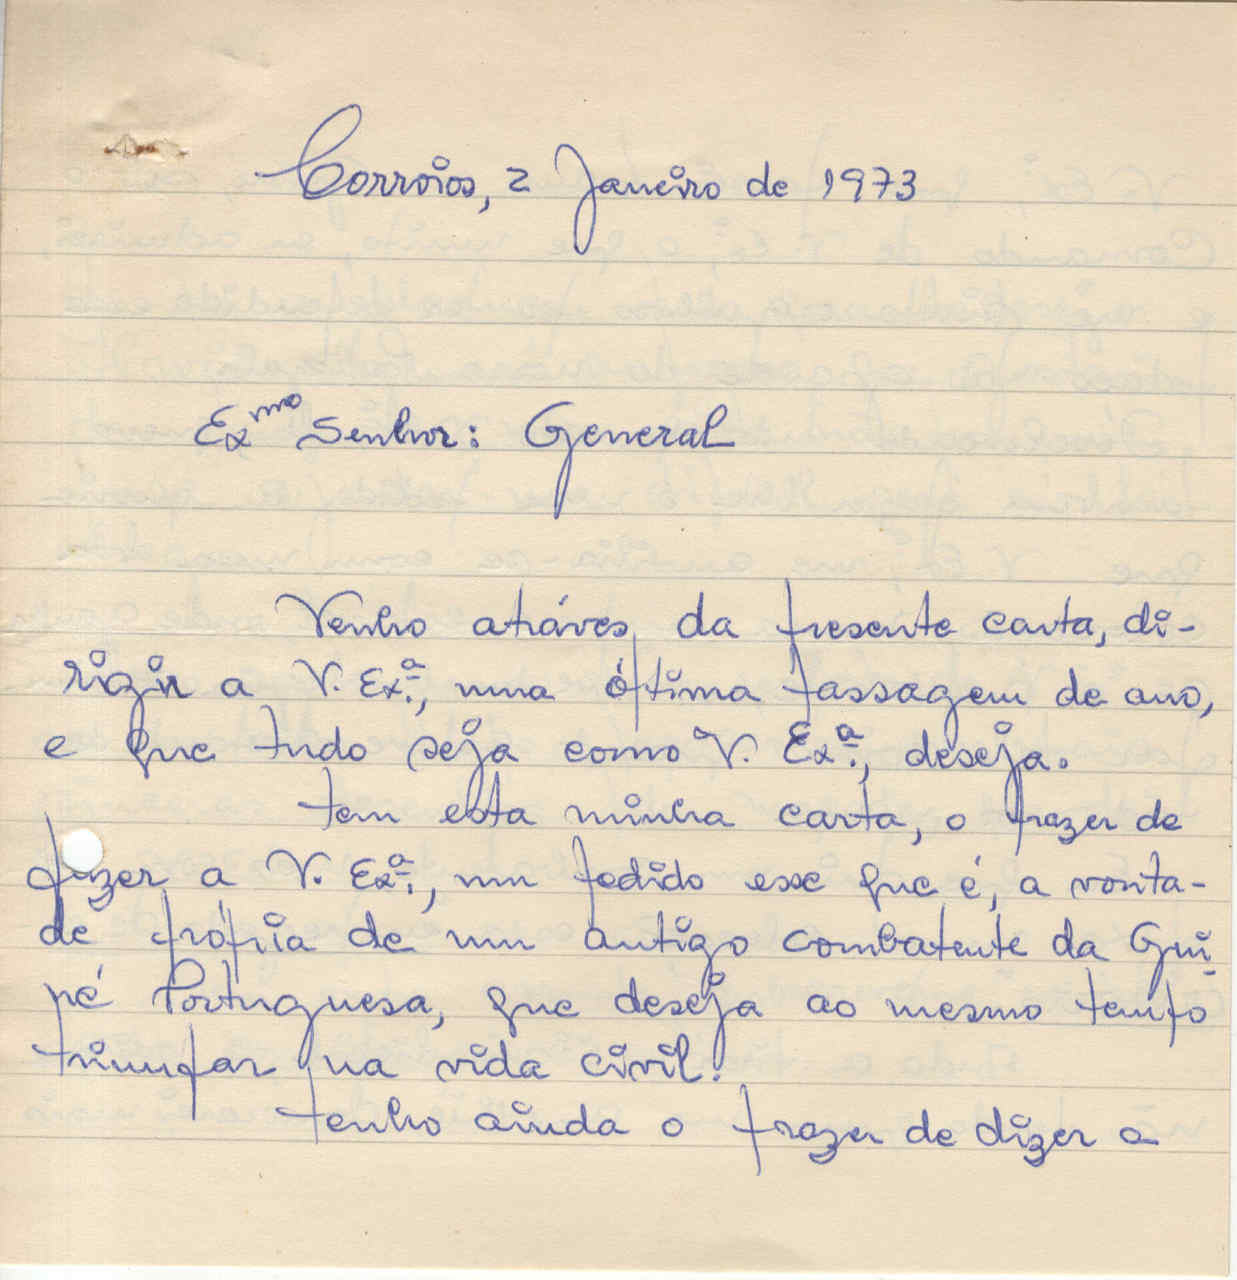 Corroios, 2 Janeiro de 1973
Exmo Senhor: General
Venho atráves, da presente carta, di-
rigir a V. Exª., uma óptima passagem de ano,
e que tudo seja como V. Exª., deseja.
Tem esta minha carta, o prazer de
fazer, a V. Exª., um pedido esse que é, a vonta-
de própria de um antigo combatente da Gui
né Portuguesa, que deseja ao mesmo tempo
triunfar na vida civil.
Tenho ainda o prazer de dizer a